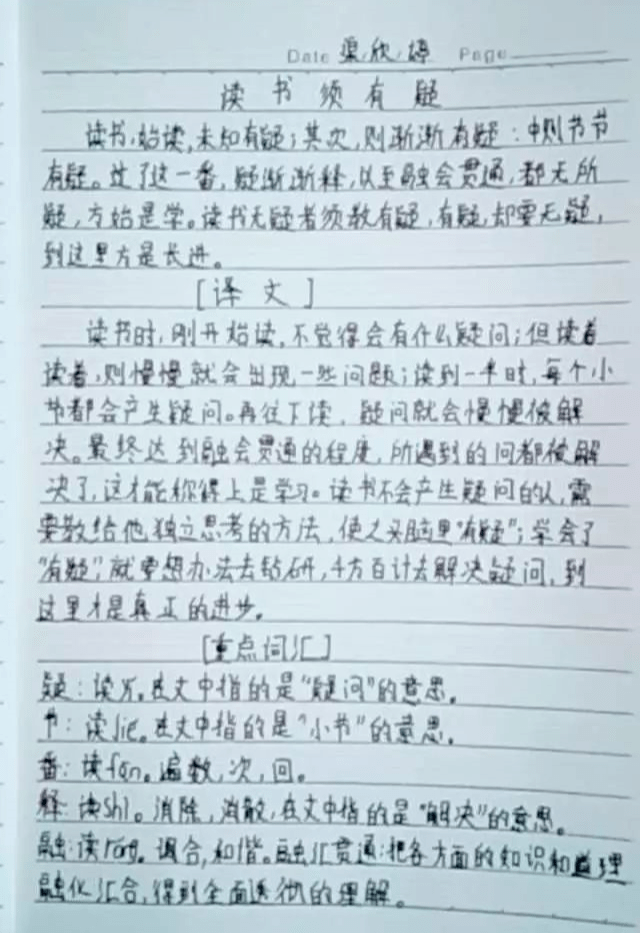 Date 梁欣婷 Page
读书须有疑
读书,始读,未知有疑;其次,则渐渐有疑:中则节节
有疑。过了这一番,疑渐渐释,以至融会贯通,都无所
疑,方始是学。读书无疑者须教有疑,有疑,却要无疑,
到这里方是长进。
[译文]
读书时,刚开始读,不觉得会有什么疑问;但读着
读着,则慢慢就会出现一些问题;读到一半时,每个小
节都会产生疑问。再往下读,疑问就会慢慢被解
决。最终达到融会贯通的程度,所遇到的问都被解
决了,这才能称得上是学习。读书不会产生疑问的认,需
要教给他独立思考的方法,使之头脑里"有疑";学会了
"有疑",就要想办法去钻研,千方百计去解决疑问,到
这里才是真正的进步。
[重点词汇]
疑:读yí。在文中指的是"疑问"的意思。
节:读jie。在文中指的是"小节"的意思。
番:读fan。遍数,次,回。
释:读shì。消除,消散,在文中指的是"解决"的意思。
融:读rong。调合,和谐。融汇贯通:把各方面的知识和道理
融化汇合,得到全面透彻的理解。